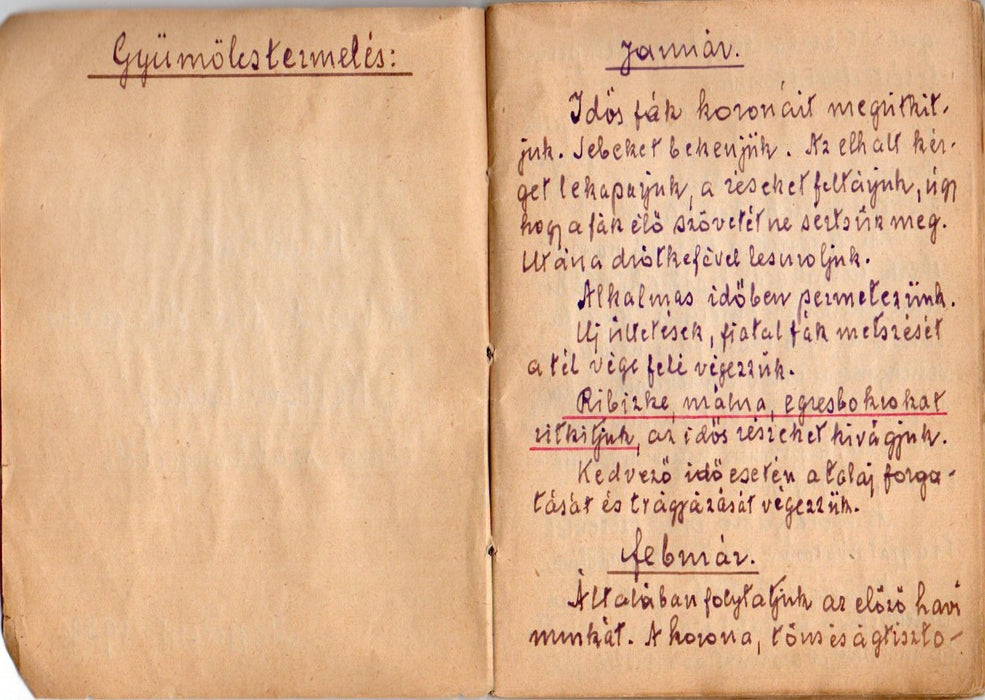 Gyümölcstermelés:
Január.
Idős fák koronáit megritkit-
juk. Sebeket bekenjük. Az elhalt kér-
get lekaparjuk, a réseket feltárjuk, úgy
hogy a fák élő szövetét ne sértsük meg.
Utána drótkefével lesuroljuk.
Alkalmas időben permetezünk.
Uj ültetések, fiatal fák metszését
a tél vége felé végezzük.
Ribizke, málna, egresbokrokat
ritkitjuk, az idős részeket kivágjuk.
Kedvező idő esetén a talaj forga-
tását és trágyázását végezzük.
Február.
Általában folytatjuk az előző havi
munkát. A korona, törzs és ágtiszto-